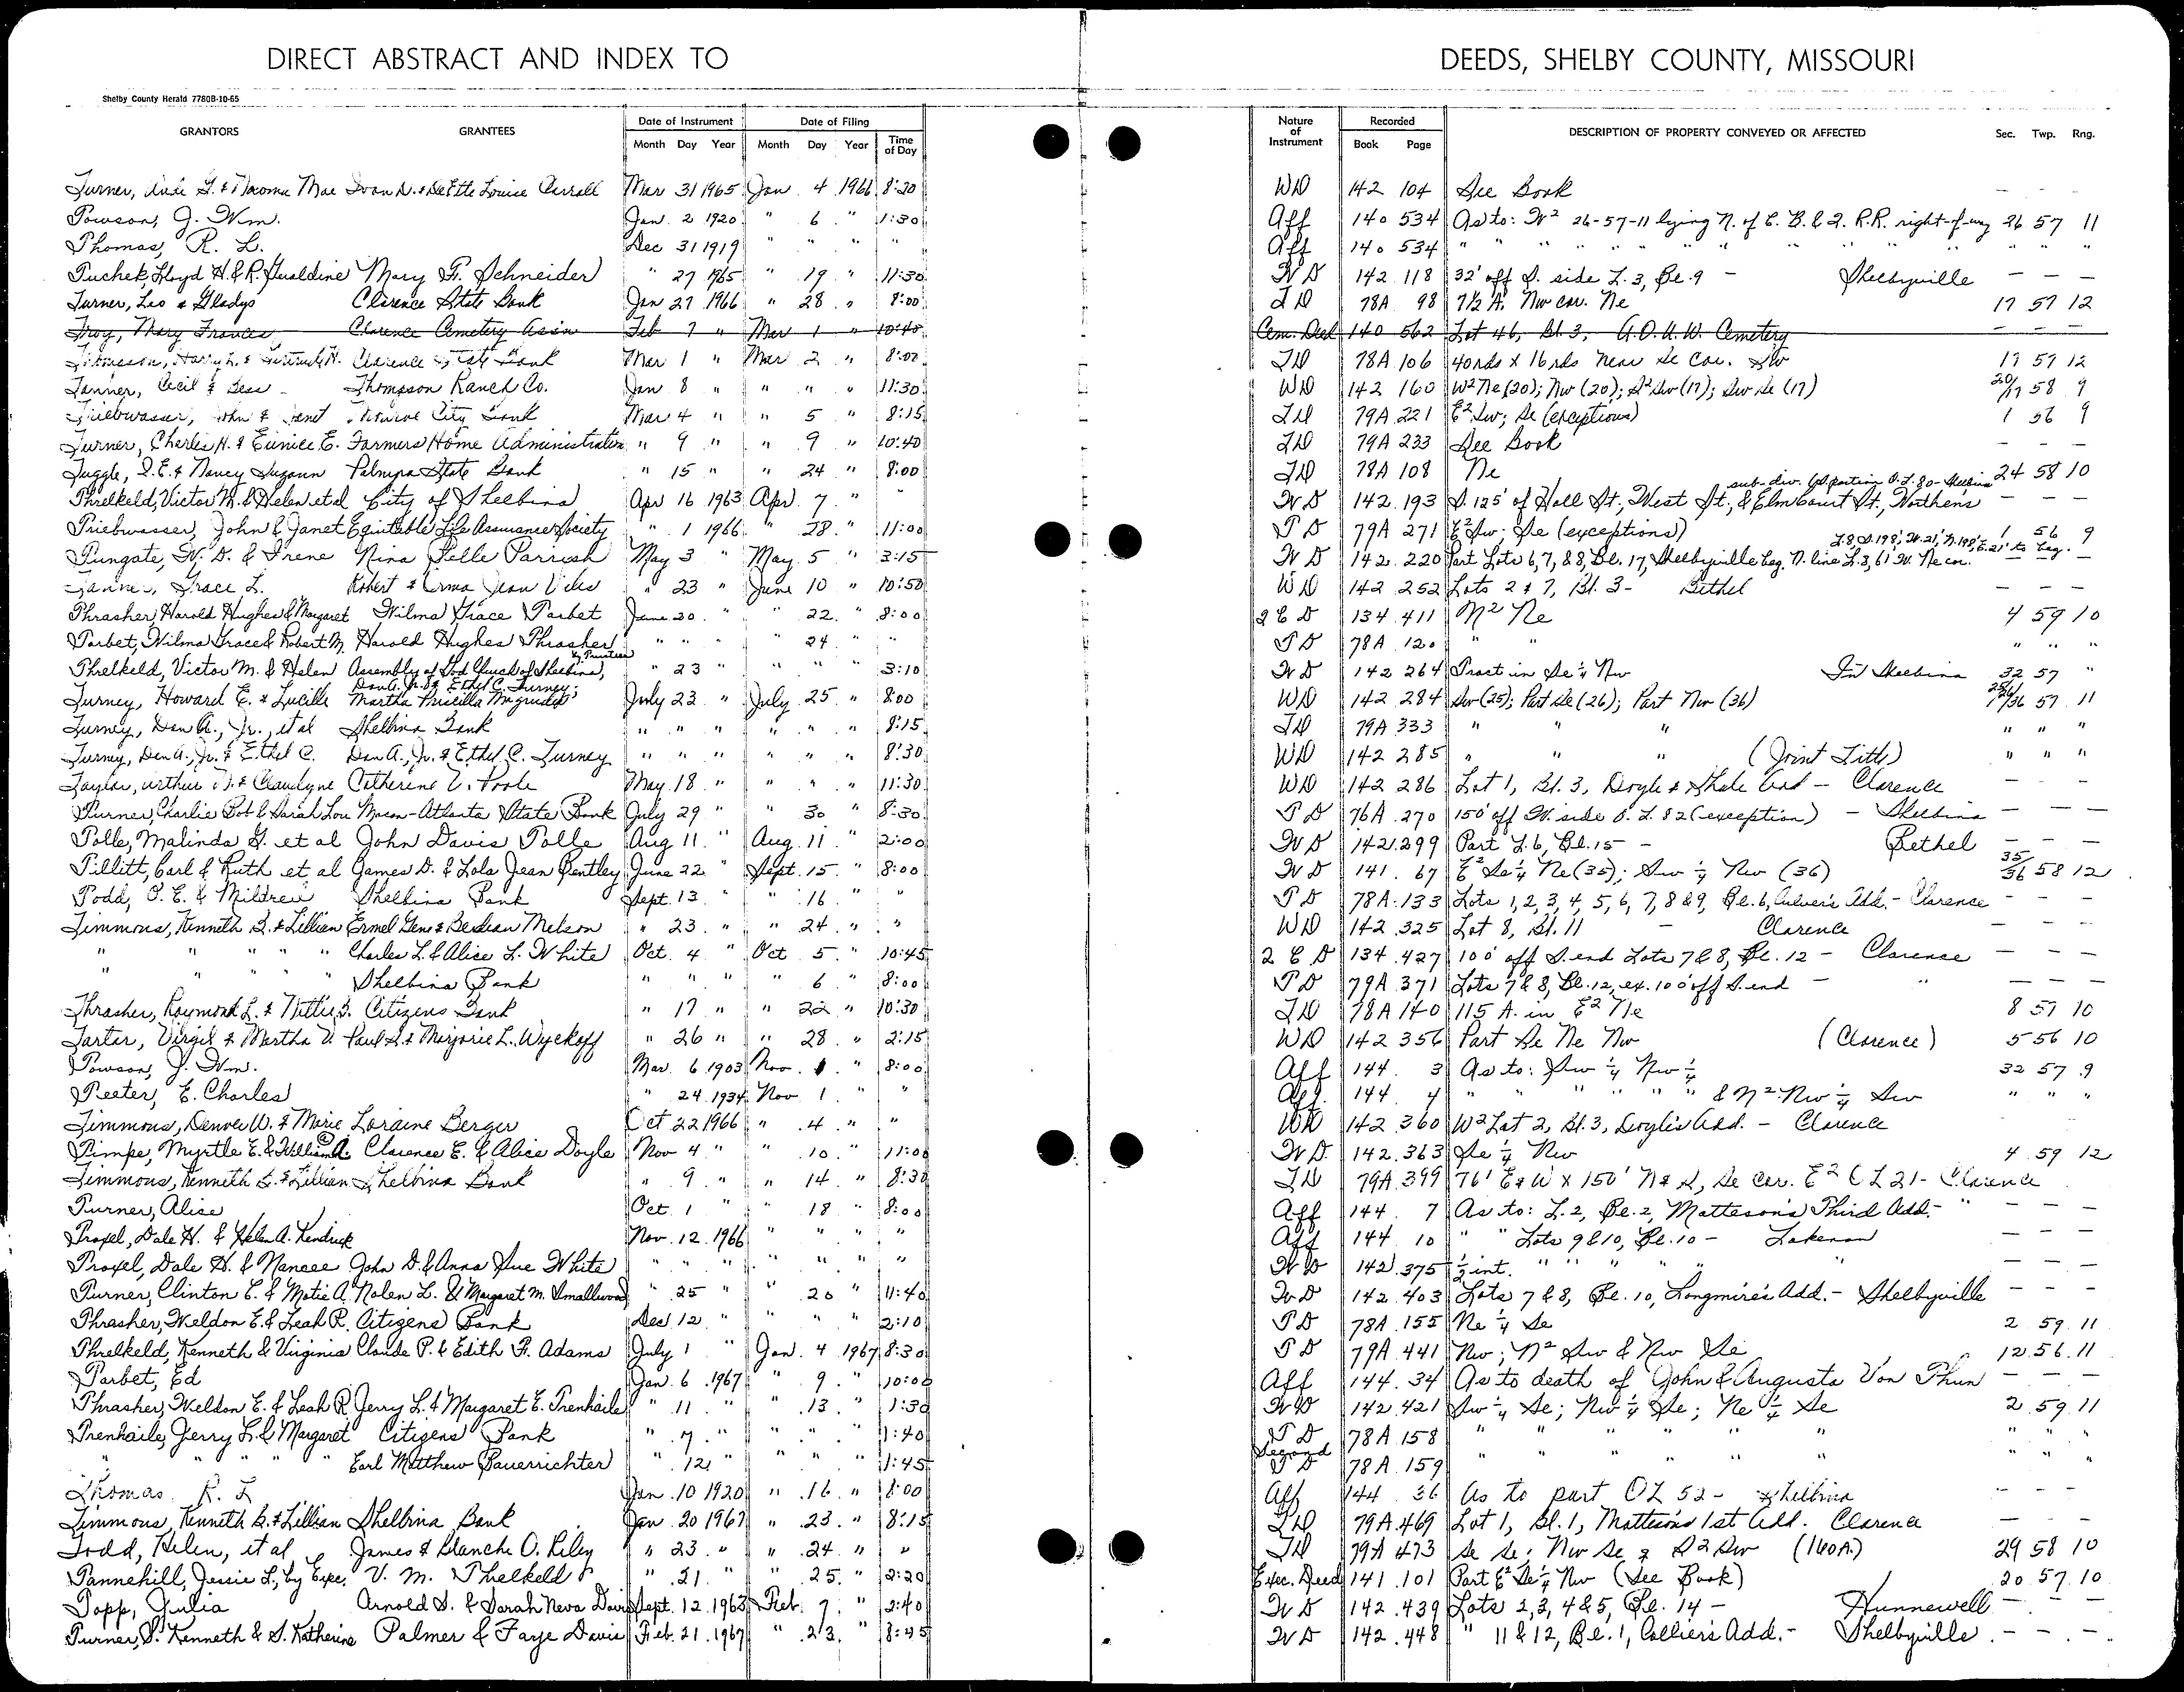 DIRECT ABSTRACT AND INDEX TO DEEDS, SHELBY COUNTY, MISSOURI
Shelby County Herald 7780B-10-65
GRANTORS GRANTEES Date of Instrument Month Day Year Date of Filing Month Day Year Time of Day Nature of Instrument Recorded Book Page DESCRIPTION OF PROPERTY CONVEYED OR AFFECTED Sec. Twp. Rng.
Turner, & Naoma Mae Ivan D. & DeEtte Louise Carroll Mar 31 1965 Jan 4 1966 8:20 WD 142 104 See Book - -
Towson, J. Wm. Jan. 2 1920 " 6 " 1:30 Aff 140 534 As to: W² 26-57-11 lying N. of C. B. & Q. R.R. right-of-way 26 57 11
Thomas, R. L. Dec 31 1919 " " " " Aff 140 534 " " " " " " " " " " "
Tuchek, Lloyd H. & R. Geraldine Mary F. Schneider " 27 1965 " 19 " 11:30 WD 142 118 32' off S. side L. 3, Bl. 9 - Shelbyville - - -
Turner, Leo & Gladys Clarence State Bank Jan 27 1966 " 28 " 8:00 TD 78A 98 7½ A. Nw cor. Ne 17 57 12
Troy, Mary Frances Clarence Cemetery Assn Feb 7 " Mar 1 " 10:40 Cem. Deed 140 562 Lot 46, Bl. 3, A.O.U.W. Cemetery - - -
Harry L. & Gertrude H. Clarence State Bank Mar 1 " Mar 2 " 8:00 TD 78A 106 40rds x 16rds near Se Cor. Sw 17 57 12
Tanner, Cecil & Bess - Thompson Ranch Co. Jan 8 " " " " 11:30 WD 142 160 W² Ne (20); Nw (20); S² Sw (17); Sw Se (17) 20/17 58 9
Triebwasser, John & Janet Monroe City Bank Mar 4 " " 5 " 8:15 TD 79A 221 E² Sw; Se (exceptions) 1 56 9
Turner, Charles H. & Eunice E. Farmers Home Administration " 9 " " 9 " 10:40 TD 79A 233 See Book - - -
Tuggle, S.E. & Nancy Suzann Palmyra State Bank " 15 " " 24 " 8:00 TD 78A 108 Ne 24 58 10
Threlkeld, Victor M. & Helen et al City of Shelbina Apr 16 1963 Apr. 7 " " WD 142 193 S. 125' of Hall St., West St., & Elm Court St., Worthen's sub-div. portion O.L. 80 - Shelbina - - -
Triebwasser, John & Janet Equitable Life Assurance Society " 1 1966 " 28 " 11:00 TD 79A 271 E² Sw; Se (exceptions) 1 56 9
Tungate, W. D. & Irene Nina Belle Parrish May 3 " May 5 " 3:15 WD 142 220 Part Lots 6, 7, & 8, Bl. 17, Shelbyville beg. N. line L. 8, 61' W. Ne cor. L. 8, S. 198', W. 21', N. 198', E. 21' to beg. - -
Tanner, Grace L. Robert & Erma Jean Viles " 23 " June 10 " 10:50 WD 142 252 Lots 2 & 7, Bl. 3 - Bethel - - -
Thrasher, Harold Hughes & Margaret Wilma Grace Tarbet June 20 " " 22 " 8:00 2 C D 134 411 N² Ne 4 59 10
Tarbet, Wilma Grace & Robert M. Harold Hughes Thrasher " " " " 24 " " TD 78A 120 " " " " "
Threlkeld, Victor M. & Helen Assembly of God Church of Shelbina, by Trustees " 23 " " " " 3:10 WD 142 264 Tract in Se ¼ Nw In Shelbina 32 57 "
Turney, Howard E. & Lucille Dan A. Jr. & Ethel C. Turney; Martha Priscilla Magruder July 23 " July 25 " 8:00 WD 142 284 Sw (25); Part Se (26); Part Nw (36) 25/26/36 57 11
Turney, Dan A., Jr., et al Shelbina Bank " " " " " " 8:15 TD 79A 333 " " " " " "
Turney, Dan A., Jr. & Ethel C. Dan A., Jr. & Ethel C. Turney " " " " " " 8:30 WD 142 285 " " " (Joint Title) " " "
Taylor, Arthur & Claudyne Catherine V. Poole May 18 " " " " 11:30 WD 142 286 Lot 1, Bl. 3, Doyle & Shale Add - Clarence - - -
Turner, Charlie Bob & Sarah Lou Macon-Atlanta State Bank July 29 " " 30 " 8:30 TD 76A 270 150' off W. side O. L. 82 (exception) - Shelbina - - -
Tolle, Malinda G. et al John Davis Tolle Aug 11 " Aug. 11 " 2:00 WD 142 299 Part L. 6, Bl. 15 - Bethel - - -
Tillitt, Carl & Ruth et al James D. & Lola Jean Bentley June 22 " Sept. 15 " 8:00 WD 141 67 E² Se ¼ Ne (35); Sw ¼ Nw (36) 35/36 58 12
Todd, O. E. & Mildred Shelbina Bank Sept. 13 " " 16 " " TD 78A 133 Lots 1, 2, 3, 4, 5, 6, 7, 8 & 9, Bl. 6, Culver's Add. - Clarence - - -
Timmons, Kenneth B. & Lillian Ermel Gene & Berdean Melson " 23 " " 24 " " WD 142 325 Lot 8, Bl. 11 - Clarence - - -
" " " " Charles L. & Alice L. White Oct. 4 " Oct 5 " 10:45 2 C D 134 427 100' off S. end Lots 7 & 8, Bl. 12 - Clarence - - -
" " " " Shelbina Bank " " " " 6 " 8:00 TD 79A 371 Lots 7 & 8, Bl. 12, ex. 100' off S. end - " - - -
Thrasher, Raymond L. & Nettie B. Citizens Bank " 17 " " 22 " 10:30 TD 78A 140 115 A. in E² Ne 8 57 10
Tarter, Virgil & Martha V. Paul S. & Marjorie L. Wyckoff " 26 " " 28 " 2:15 WD 142 356 Part Se Ne Nw (Clarence) 5 56 10
Towson, J. Wm. Mar. 6 1903 Nov. 1 " 8:00 Aff 144 3 As to: Sw ¼ Nw ¼ 32 57 9
Teeter, E. Charles " 24 1934 Nov 1 " " Aff. 144 4 " " " " " " & N² Nw ¼ Sw " " "
Timmons, Denver W. & Marie Loraine Berger Oct 22 1966 " 4 " " WD 142 360 W² Lot 2, Bl. 3, Doyle's Add. - Clarence
Timpe, Myrtle E. & William A. Clarence E. & Alice Doyle Nov 4 " " 10 " 11:00 WD 142 363 Se ¼ Nw 4 59 12
Timmons, Kenneth B. & Lillian Shelbina Bank " 9 " " 14 " 8:30 TD 79A 399 76' E & W x 150' N & S, Se cor. E² OL 21 - Clarence
Turner, Alice Oct. 1 " " 18 " 8:00 Aff 144 7 As to: L. 2, Bl. 2, Matteson's Third Add. - " - - -
Troxel, Dale H. & Helen A. Kendrick Nov. 12 1966 " " " " Aff 144 10 " " Lots 9 & 10, Bl. 10 - Lakenan - - -
Troxel, Dale H. & Nancee John D. & Anna Sue White " " " " " " " WD 142 375 ½ int. " " " " " - - -
Turner, Clinton E. & Matie A. Nolen L. & Margaret M. Smallwood " 25 " " 20 " 11:40 WD 142 403 Lots 7 & 8, Bl. 10, Longmire's Add. - Shelbyville - - -
Thrasher, Weldon E. & Leah R. Citizens Bank Dec 12 " " " " 2:10 TD 78A 155 Ne ¼ Se 2 59 11
Threlkeld, Kenneth & Virginia Claude P. & Edith F. Adams July 1 " Jan. 4 1967 8:30 TD 79A 441 Nw; N² Sw & Nw Se 12 56 11
Tarbet, Ed Jan. 6 1967 " 9 " 10:00 Aff 144 34 As to death of John & Augusta Von Thun - - -
Thrasher, Weldon E. & Leah R. Jerry L. & Margaret E. Trenhaile " 11 " " 13 " 1:30 WD 142 421 Sw ¼ Se; Nw ¼ Se; Ne ¼ Se 2 59 11
Trenhaile, Jerry L. & Margaret Citizens Bank " 7 " " " " 1:40 TD 78A 158 " " " " " " " "
" " " " Earl Matthew Bauerrichter " 12 " " " " 1:45 Second TD 78A 159 " " " " " " " "
Thomas R. L Jan. 10 1920 " 16 " 8:00 Aff 144 36 As to part OL 52 - Shelbina - - -
Timmons, Kenneth B. & Lillian Shelbina Bank Jan 20 1967 " 23 " 8:15 TD 79A 469 Lot 1, Bl. 1, Matteson's 1st Add. Clarence - - -
Todd, Helen, et al James & Blanche O. Riley " 23 " " 24 " " TD 79A 473 Se Se; Nw Se & S2 Sw (160A.) 29 58 10
Tannehill, Jessie L., by Exec. V. M. Threlkeld " 21 " " 25 " 2:20 Exec. Deed 141 101 Part E² Se ¼ Nw (See Book) 20 57 10
Topp, Julia Arnold D. & Sarah Neva Davis Sept. 12 1963 Feb. 7 " 2:40 WD 142 439 Lots 2, 3, 4 & 5, Bl. 14 - Hunnewell - - -
Turner, S. Kenneth & S. Katherine Palmer & Faye Davis Feb. 21 1967 " 23 " 8:45 WD 142 448 " 11 & 12, Bl. 1, Collier's Add. - Shelbyville - - -